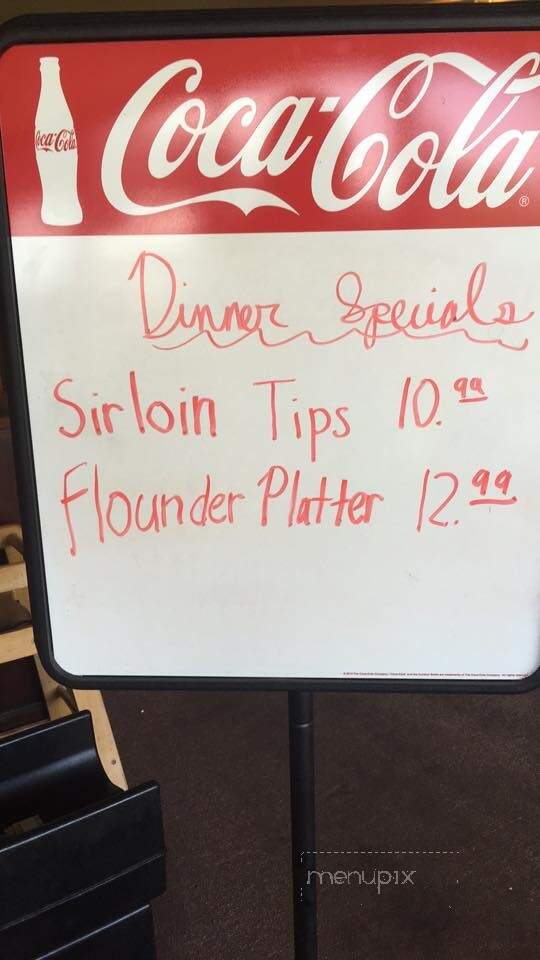 Coca-Cola
Coca-Cola®
Dinner Specials
Sirloin Tips 10.99
Flounder Platter 12.99
menupix